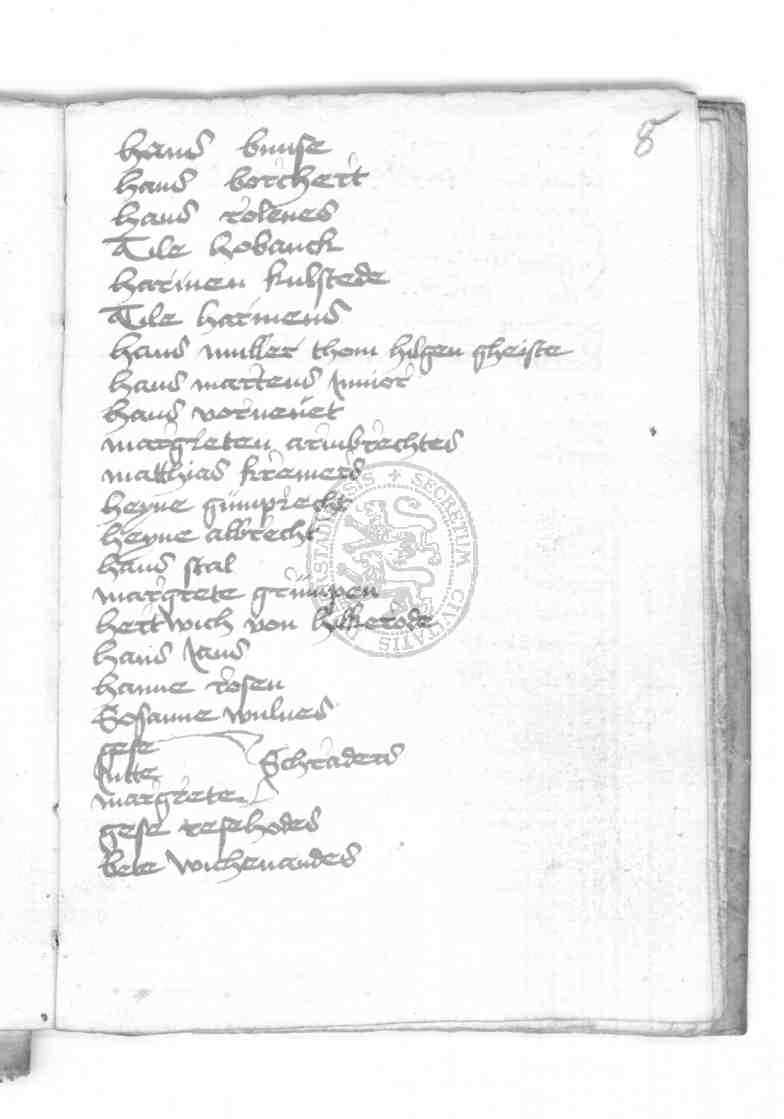 8
hans bunse
hans borchert
hans rolenes
Tile hobanck
harmen kulstede
Tile harmens
hans muller thom hilgen gheiste
hans martens junior
hans vorneuet
margreten armbrechtes
matthias kremers
heyne gumprecht
heyne albrecht
hans stal
margrete grumpen
hertwich von hilkerode
hans jans
hanne rosen
Sosanne wulues
gese
jutte Schraders
margrete
gese resehodes
bete wichenandes
SECRETUM CIVITATIS